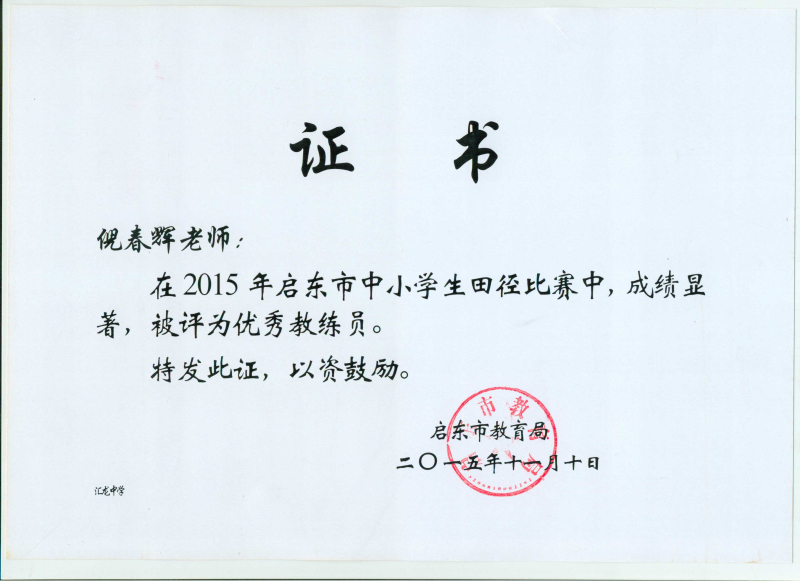 证 书
倪春辉老师：
在2015年启东市中小学生田径比赛中，成绩显
著，被评为优秀教练员。
特发此证，以资鼓励。
启东市教育局
二〇一五年十一月十日
汇龙中学